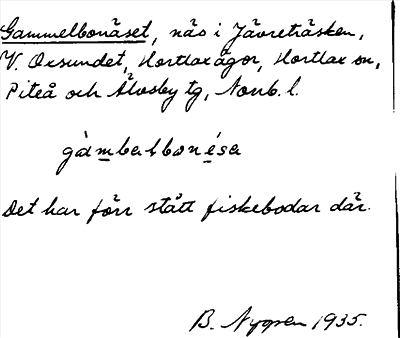 Gammelbonäset, näs i Jävreträsken,
V. Oxsundet, Hortlax ägor, Hortlax sn,
Piteå och Älvsby tg, Norrb. l.
gámbalbonésa
Det har förr stått fiskebodar där.
B. Nygren 1935.